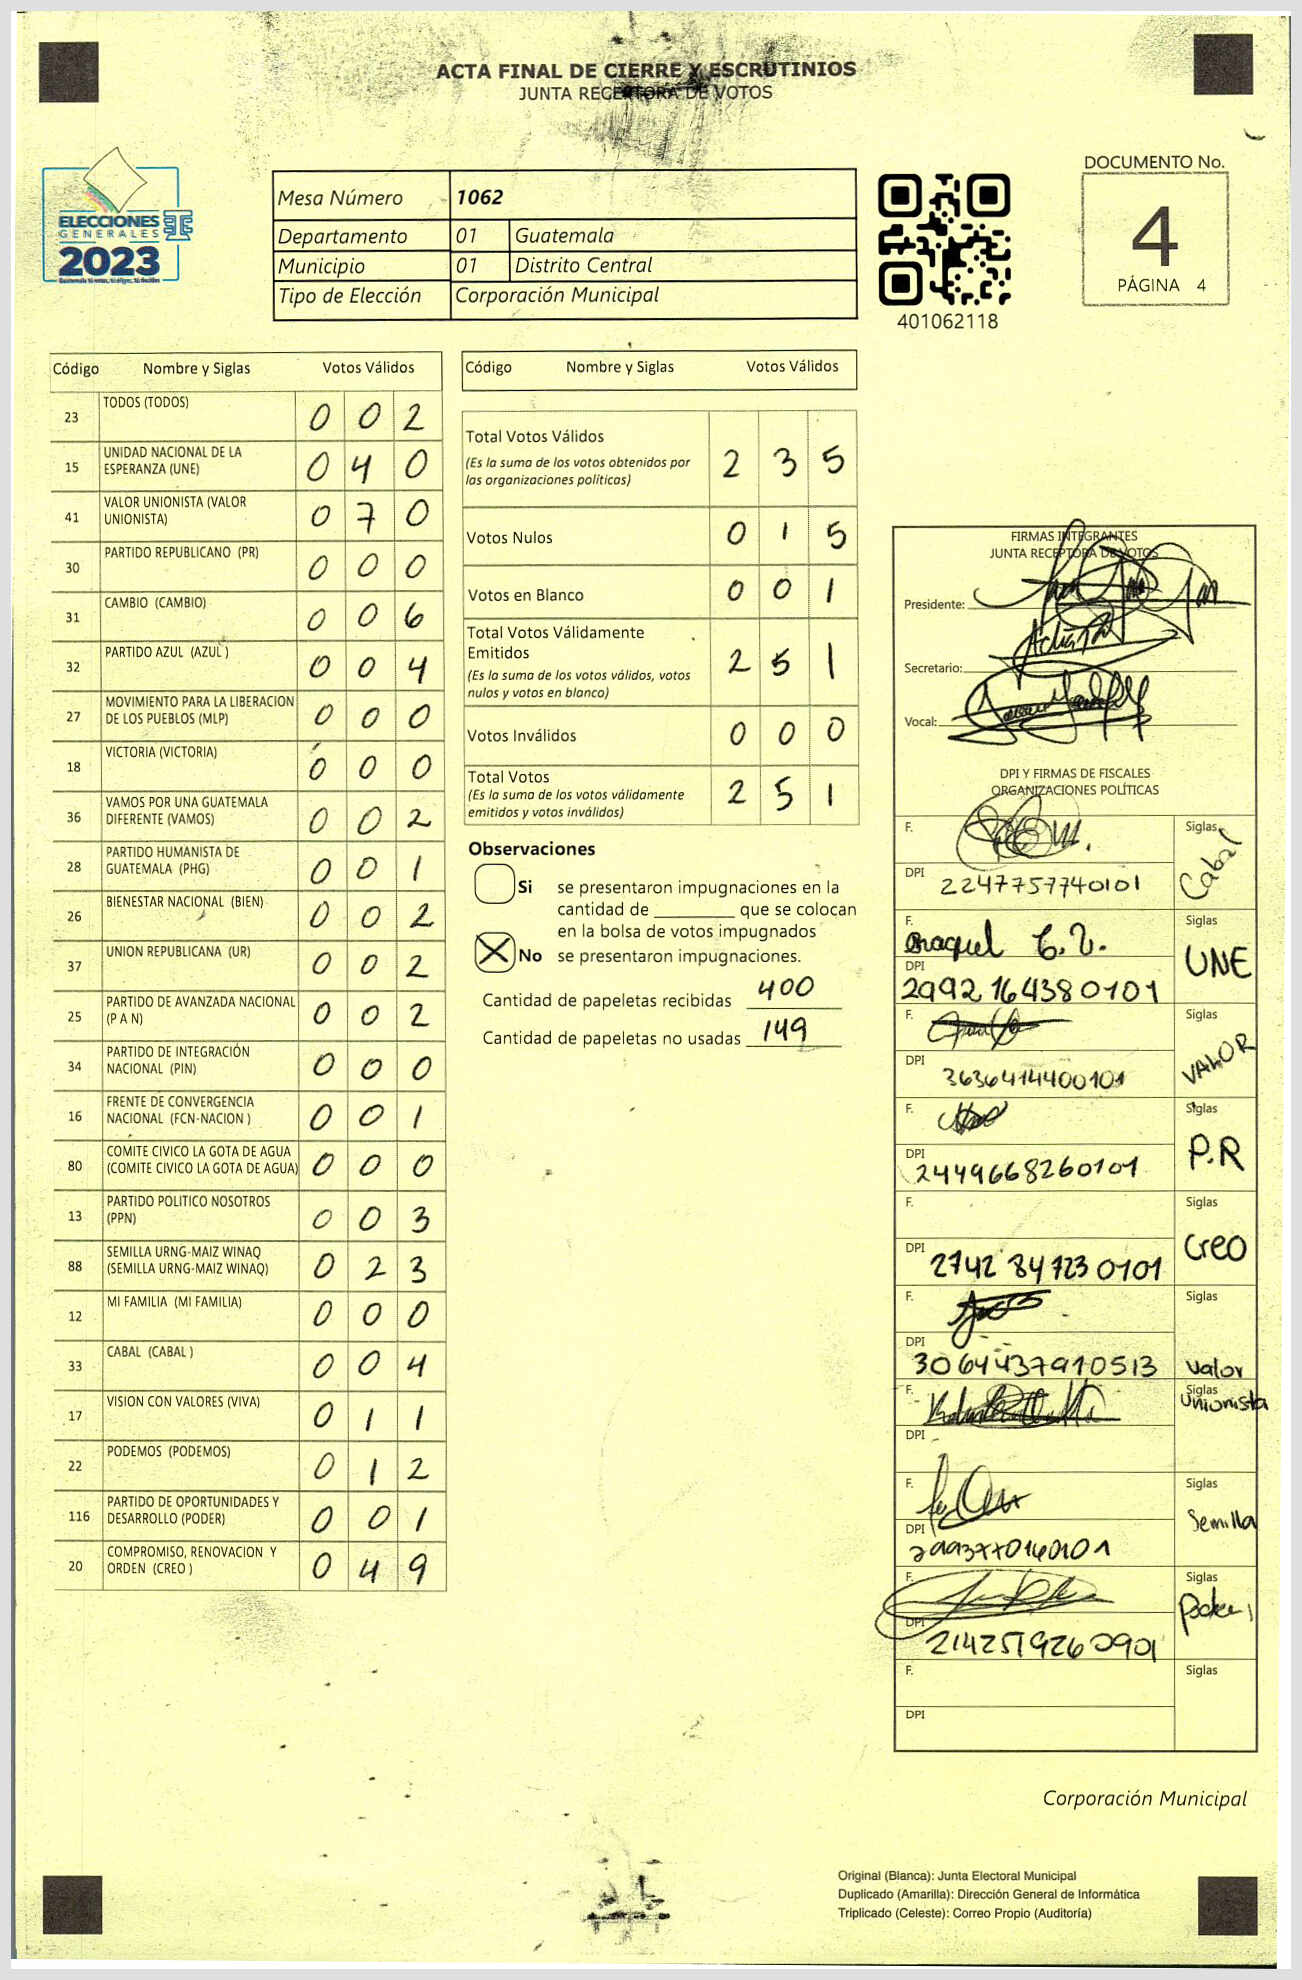 ACTA FINAL DE CIERRE Y ESCRUTINIOS
JUNTA RECEPTORA DE VOTOS
ELECCIONES
GENERALES
2023
Mesa Número 1062
Departamento 01 Guatemala
Municipio 01 Distrito Central
Tipo de Elección Corporación Municipal
401062118
DOCUMENTO No.
4
PÁGINA 4
Código Nombre y Siglas Votos Válidos
23 TODOS (TODOS) 0 0 2
15 UNIDAD NACIONAL DE LA ESPERANZA (UNE) 0 4 0
41 VALOR UNIONISTA (VALOR UNIONISTA) 0 7 0
30 PARTIDO REPUBLICANO (PR) 0 0 0
31 CAMBIO (CAMBIO) 0 0 6
32 PARTIDO AZUL (AZUL ) 0 0 4
27 MOVIMIENTO PARA LA LIBERACION DE LOS PUEBLOS (MLP) 0 0 0
18 VICTORIA (VICTORIA) 0 0 0
36 VAMOS POR UNA GUATEMALA DIFERENTE (VAMOS) 0 0 2
28 PARTIDO HUMANISTA DE GUATEMALA (PHG) 0 0 1
26 BIENESTAR NACIONAL (BIEN) 0 0 2
37 UNION REPUBLICANA (UR) 0 0 2
25 PARTIDO DE AVANZADA NACIONAL (P A N) 0 0 2
34 PARTIDO DE INTEGRACIÓN NACIONAL (PIN) 0 0 0
16 FRENTE DE CONVERGENCIA NACIONAL (FCN-NACION ) 0 0 1
80 COMITE CIVICO LA GOTA DE AGUA (COMITE CIVICO LA GOTA DE AGUA) 0 0 0
13 PARTIDO POLITICO NOSOTROS (PPN) 0 0 3
88 SEMILLA URNG-MAIZ WINAQ (SEMILLA URNG-MAIZ WINAQ) 0 2 3
12 MI FAMILIA (MI FAMILIA) 0 0 0
33 CABAL (CABAL ) 0 0 4
17 VISION CON VALORES (VIVA) 0 1 1
22 PODEMOS (PODEMOS) 0 1 2
116 PARTIDO DE OPORTUNIDADES Y DESARROLLO (PODER) 0 0 1
20 COMPROMISO, RENOVACION Y ORDEN (CREO ) 0 4 9
Código Nombre y Siglas Votos Válidos
Total Votos Válidos 2 3 5
(Es la suma de los votos obtenidos por
las organizaciones políticas)
Votos Nulos 0 1 5
Votos en Blanco 0 0 1
Total Votos Válidamente
Emitidos 2 5 1
(Es la suma de los votos válidos, votos
nulos y votos en blanco)
Votos Inválidos 0 0 0
Total Votos 2 5 1
(Es la suma de los votos válidamente
emitidos y votos inválidos)
Observaciones
Si se presentaron impugnaciones en la
cantidad de ________ que se colocan
en la bolsa de votos impugnados
X No se presentaron impugnaciones.
Cantidad de papeletas recibidas 400
Cantidad de papeletas no usadas 149
FIRMAS INTEGRANTES
JUNTA RECEPTORA DE VOTOS
Presidente:
Secretario:
Vocal:
DPI Y FIRMAS DE FISCALES
ORGANIZACIONES POLÍTICAS
F. Siglas
Cabal
DPI 2247757740101
F. Siglas
UNE
DPI 2992 16438 0101
F. Siglas
VALOR
DPI 3636414400101
F. Siglas
P.R
DPI 2449668260101
F. Siglas
Creo
DPI 2742 84723 0101
F. Siglas
DPI 3064437910513 Valor
F. Siglas
Unionista
DPI
F. Siglas
Semilla
DPI
F. Siglas
DPI 2142519260901
F. Siglas
DPI
Corporación Municipal
Original (Blanca): Junta Electoral Municipal
Duplicado (Amarilla): Dirección General de Informática
Triplicado (Celeste): Correo Propio (Auditoría)